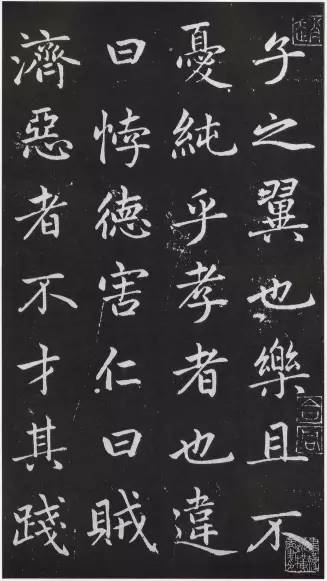 子之翼也樂且不
憂純乎孝者也違
曰悖德害仁曰賊
濟惡者不才其踐